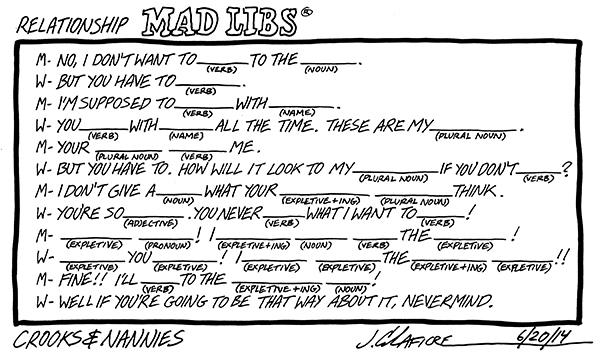 RELATIONSHIP MAD LIBS®
M- NO, I DON'T WANT TO ______ TO THE ______.
(VERB) (NOUN)
W- BUT YOU HAVE TO ______.
(VERB)
M- I'M SUPPOSED TO ______ WITH ______.
(VERB) (NAME)
W- YOU ______ WITH ______ ALL THE TIME. THESE ARE MY ______.
(VERB) (NAME) (PLURAL NOUN)
M- YOUR ______ ______ ME.
(PLURAL NOUN) (VERB)
W- BUT YOU HAVE TO. HOW WILL IT LOOK TO MY ______ IF YOU DON'T ______?
(PLURAL NOUN) (VERB)
M- I DON'T GIVE A ______ WHAT YOUR ______ ______ THINK.
(NOUN) (EXPLETIVE+ING) (PLURAL NOUN)
W- YOU'RE SO ______. YOU NEVER ______ WHAT I WANT TO ______!
(ADJECTIVE) (VERB) (VERB)
M- ______ ______! I ______ ______ ______ THE ______!
(EXPLETIVE) (PRONOUN) (EXPLETIVE+ING) (NOUN) (VERB) (EXPLETIVE)
W- ______ YOU ______! I ______ ______ THE ______ ______!!
(EXPLETIVE) (EXPLETIVE) (EXPLETIVE+ING) (EXPLETIVE) (EXPLETIVE+ING) (EXPLETIVE)
M- FINE!! I'LL ______ TO THE ______ ______!
(VERB) (EXPLETIVE+ING) (NOUN)
W- WELL IF YOU'RE GOING TO BE THAT WAY ABOUT IT, NEVERMIND.
CROOKS & NANNIES J.C. LAFIORE 6/20/14